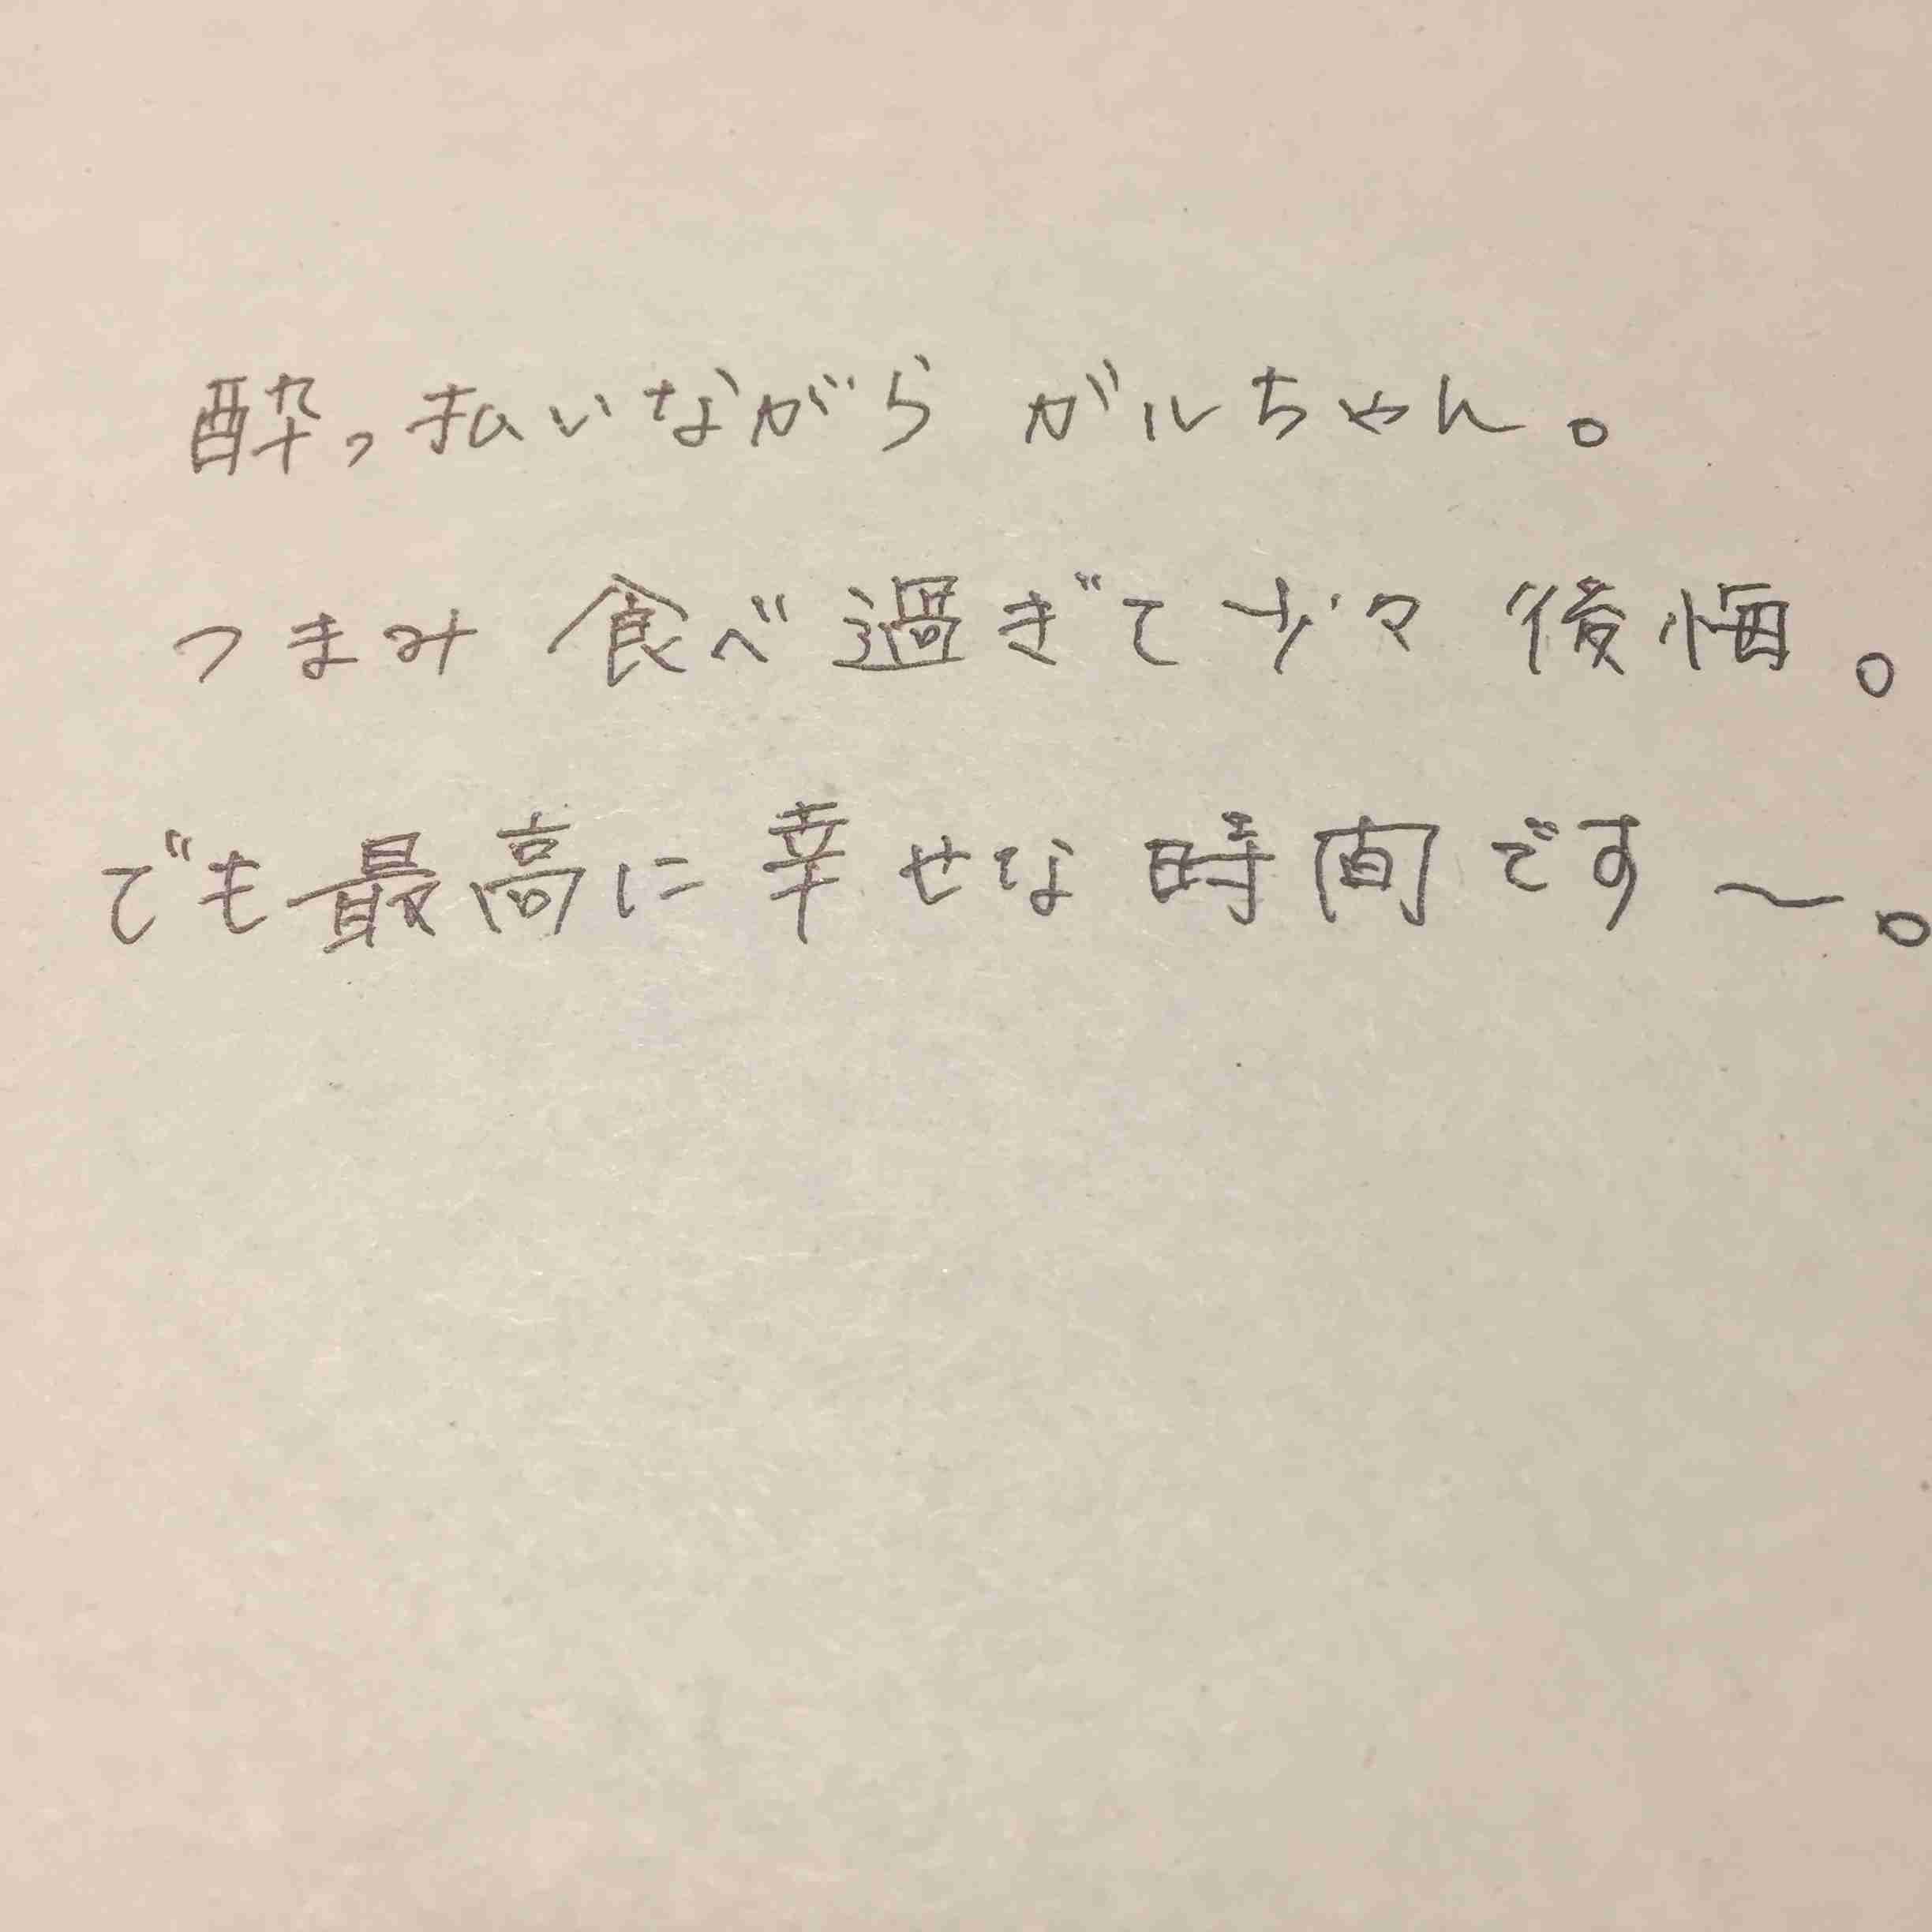 酔っ払いながらガルちゃん。
つまみ食べ過ぎて少々後悔。
でも最高に幸せな時間です〜。